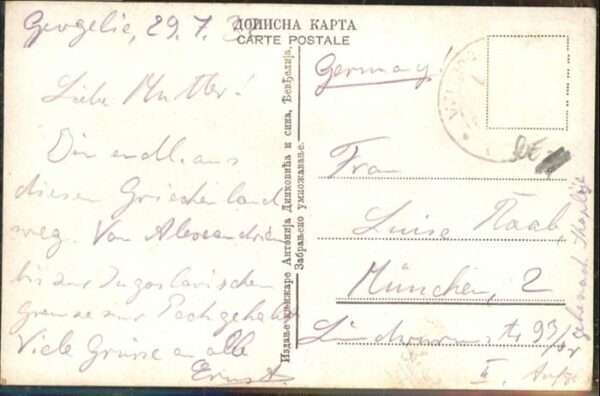 ДОПИСНА КАРТА
CARTE POSTALE
Gevgelie, 29. 7.
Liebe Mutter!
Bin endl. aus
diesem Griechenland
weg. Von Alexandrien
bis zur Jugoslavischen
Grenze zur
Viele Grüsse an alle
Ernst.
Издање књижаре Антонија Динковића и сина, Ђевђелија.
Забрањено умножавање.
Germany!
Frau
Luise Raab,
München, 2
Lindwurmstr 93/
II. Aufg.